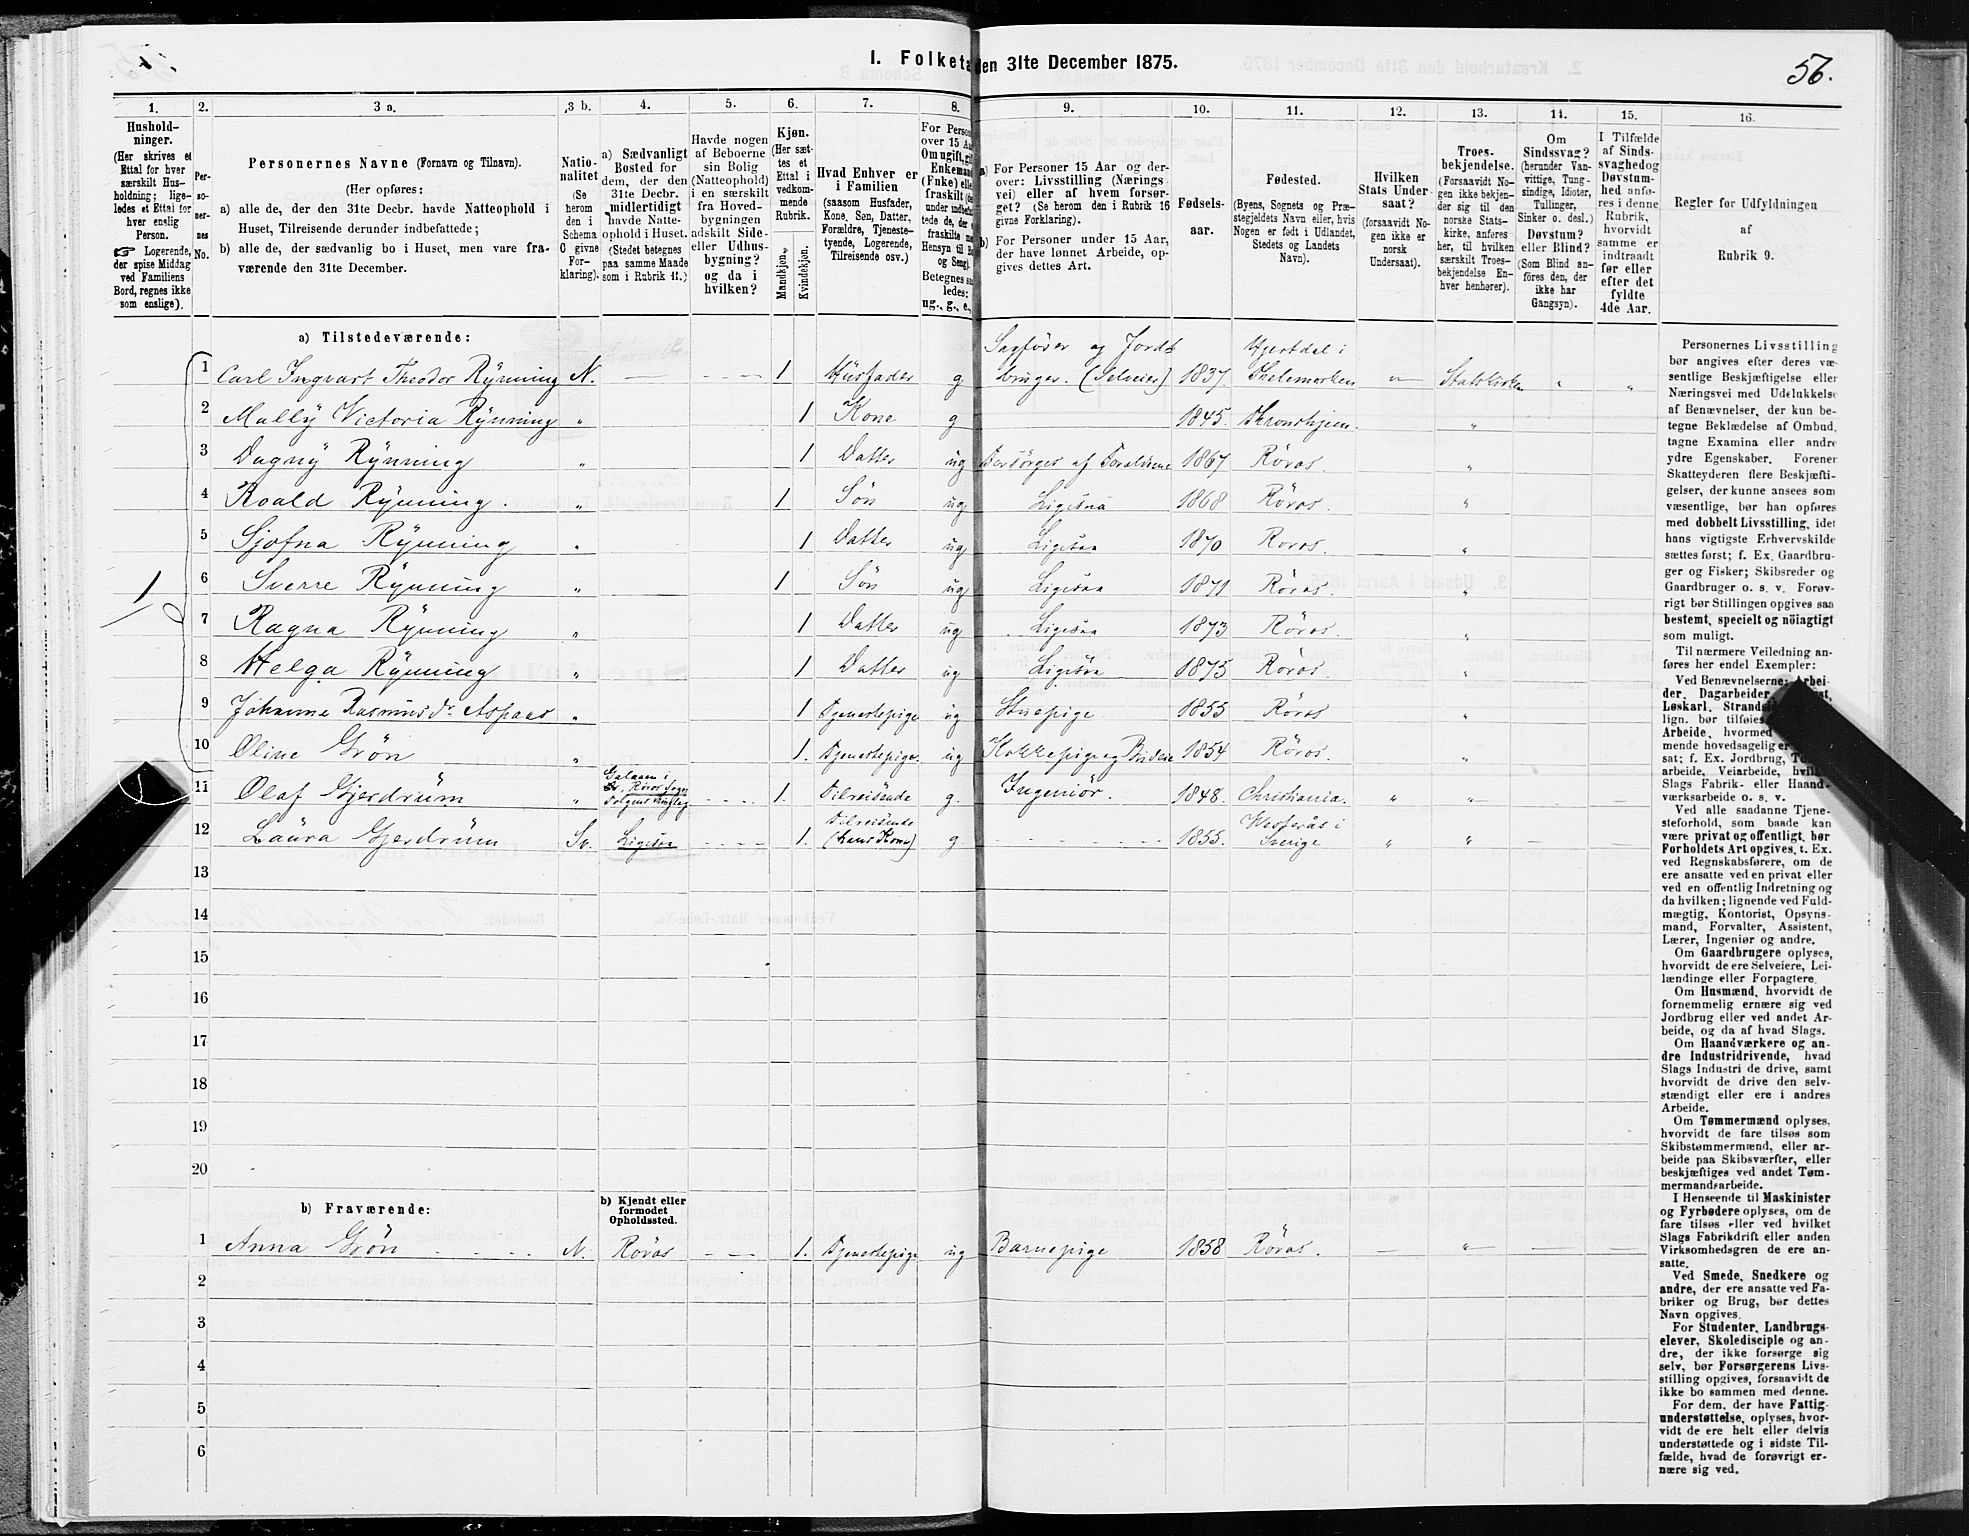 I. Folketæ den 31te December 1875.
56.
1. 2. 3 a. 3 b. 4. 5. 6. 7. 8. 9. 10. 11. 12. 13. 14. 15. 16.
Hushold-
ninger.
(Her skrives et
Ettal for hver
særskilt Hus-
holdning; lige-
ledes et Ettal for
hver enslig
Person.
☞ Logerende,
der spise Middag
ved Familiens
Bord, regnes ikke
som enslige).
Per-
so-
ner-
nes
No.
Personernes Navne (Fornavn og Tilnavn).
(Her opføres:
a) alle de, der den 31te Decbr. havde Natteophold i
Huset, Tilreisende derunder indbefattede;
b) alle de, der sædvanlig bo i Huset, men vare fra-
værende den 31te December.
Natio-
nalitet
(Se
herom
den i
Schema
C givne
For-
klaring).
a) Sædvanligt
Bosted for
dem, der den
31te Decbr.
midlertidigt
havde Natte-
ophold i Huset.
(Stedet betegnes
paa samme Maade
som i Rubrik 11.)
Havde nogen
af Beboerne
sin Bolig
(Natteophold)
i en særskilt
fra Hoved-
bygningen
adskilt Side-
eller Udhus-
bygning?
og da i
hvilken?
Kjøn.
(Her sæt-
tes et
Ettal i
vedkom-
mende
Rubrik.
Mandkjøn.
Kvindekjøn.
Hvad Enhver er
i Familien
(saasom Husfader,
Kone, Søn, Datter,
Forældre, Tjeneste-
tyende, Logerende,
Tilreisende osv.)
For Person
over 15 Aa
Om ugift, gi
Enkeman
(Enke) elle
fraskilt (de
under indbefat-
tede de, der e
fraskilte me
Hensyn til Bo
og Seng).
Betegnes sa
ledes:
ug., g., e.,
a) For Personer 15 Aar og der-
over: Livsstilling (Nærings-
vei) eller af hvem forsør-
get? (Se herom den i Rubrik 16
givne Forklaring).
b) For Personer under 15 Aar,
der have lønnet Arbeide, op-
gives dettes Art.
Fødsels-
aar.
Fødested.
(Byens, Sognets og Præ-
stegjeldets Navn eller, hvis
Nogen er født i Udlandet,
Stedets og Landets
Navn).
Hvilken
Stats Under-
saat?
(forsaavidt No-
gen ikke er
norsk
Undersaat).
Troes-
bekjendelse.
(Forsaavidt No-
gen ikke bekjen-
der sig til den
norske Stats-
kirke, anføres
her, til hvilken
særskilt Troes-
bekjendelse En-
hver henhører).
Om
Sindssvag?
(herunder Van-
vittige, Tung-
sindige, Idioter,
Tullinger,
Sinker o. desl.)
Døvstum?
eller Blind?
(Som Blind an-
føres den, der
ikke har
Gangsyn).
I Tilfælde
af Sinds-
svaghed og
Døvstum-
hed anfø-
res i denne
Rubrik,
hvorvidt
samme er
indtraadt
før eller
efter det
fyldte
4de Aar.
Regler for Udfyldningen
af
Rubrik 9.
a) Tilstedeværende:
1
1 Carl Ingvart Theodor Rynning N. — - - - 1 Husfader g Sagfører og Jordbruger. (Selveier) 1837 Hjertdal i Thelemarken " Statskirken " "
2 Mally Victoria Rynning " 1 Kone g 1845. Thronshjem. "
3 Dagny Rynning " 1 Datter ug Forsørges af Forældrene 1867 Röros. "
4 Roald Rynning. " 1 Søn ug Ligesaa 1868 Röros. "
5 Sjofna Rynning " 1 Datter ug Ligesaa 1870 Roros. "
6 Sverre Rynning " 1 Søn ug Ligesaa 1871 Röros. "
7 Ragna Rynning " 1 Datter ug Ligesaa 1873 Röros. "
8 Helga Rynning " 1 Datter ug Ligesaa 1875 Röros. "
9 Johanne Rasmusdr. Aspaas " 1 Tjenestepige ug Stuepige 1855 Röros "
10 Oline Grön " 1. Tjenestepige. ug Kokkepige og Budeie 1854 Röros. "
11 Olaf Gjerdrum " Röros Sogn - - - - 1. Tilreisende g. Ingeniör. 1848. Christiania. " "
12 Laura Gjerdrum Sv. Ligesaa - - - - 1. Tilreisende (hans Kone) g. - - - - 1855. Westerås i Sverige " "
13
14
15
16
17
18
19
20
b) Fraværende:
b) Kjendt eller
formodet
Opholdssted.
1 Anna Grön N. Röros - - - 1. Tjenestepige ug Barnepige 1858 Röros. — " — —
2
3
4
5
6
Personernes Livsstilling
bør angives efter deres væ-
sentlige Beskjæftigelse eller
Næringsvei med Udelukkelse
af Benævnelser, der kun be-
tegne Beklædelse af Ombud,
tagne Examina eller andre
ydre Egenskaber. Forener
Skatteyderen flere Beskjæfti-
gelser, der kunne ansees som
væsentlige, bør han opføres
med dobbelt Livsstilling, idet
hans vigtigste Erhvervskilde
sættes først; f. Ex. Gaardbru-
ger og Fisker; Skibsreder og
Gaardbruger o. s. v. Forøv-
rigt bør Stillingen opgives saa
bestemt, specielt og nöiagtigt
som muligt.
Til nærmere Veiledning an-
føres her endel Exempler:
Ved Benævnelserne: Arbei-
der, Dagarbeider,
Løskarl, Strands
lign. bør tilføies
Arbeide, hvormed
mende hovedsagelig er
sat; f. Ex. Jordbrug,
arbeide, Veiarbeide, hvil
Slags Fabrik- eller Haand-
værksarbeide o. s. v.
Ved alle saadanne Tjene-
steforhold, som baade kan
være privat og offentligt, bør
Forholdets Art opgives, t. Ex.
ved Regnskabsførere, om de
ere ansatte ved en privat eller
ved en offentlig Indretning og
da hvilken; lignende ved Fuld-
mægtig, Kontorist, Opsyns-
mand, Forvalter, Assistent,
Lærer, Ingeniør og andre.
Om Gaardbrugere oplyses,
hvorvidt de ere Selveiere, Lei-
lændinge eller Forpagtere.
Om Husmænd, hvorvidt de
fornemmelig ernære sig ved
Jordbrug eller ved andet Ar-
beide, og da af hvad Slags.
Om Haandværkere og an-
dre Industridrivende, hvad
Slags Industri de drive, samt
hvorvidt de drive den selv-
stændigt eller ere i andres
Arbeide.
Om Tømmermænd oplyses,
hvorvidt de fare tilsøs som
Skibstømmermænd, eller ar-
beide paa Skibsværfter, eller
beskjæftiges ved andet Tøm-
mermandsarbeide.
I Henseende til Maskinister
og Fyrbødere oplyses, om de
fare tilsøs eller ved hvilket
Slags Fabrikdrift eller anden
Virksomhedsgren de ere an-
satte.
Ved Smede, Snedkere og
andre, der ere ansatte ved Fa-
briker og Brug, bør dettes
Navn opgives.
For Studenter, Landbrugs-
elever, Skoledisciple og an-
dre, der ikke forsørge sig
selv, bør Forsørgerens Livs-
stilling opgives, forsaavidt de
ikke bo sammen med denne.
For dem, der have Fattig-
understøttelse, oplyses, hvor-
vidt de ere helt eller delvis
understøttede og i sidste Til-
fælde, hvad de forøvrigt er-
nære sig ved.